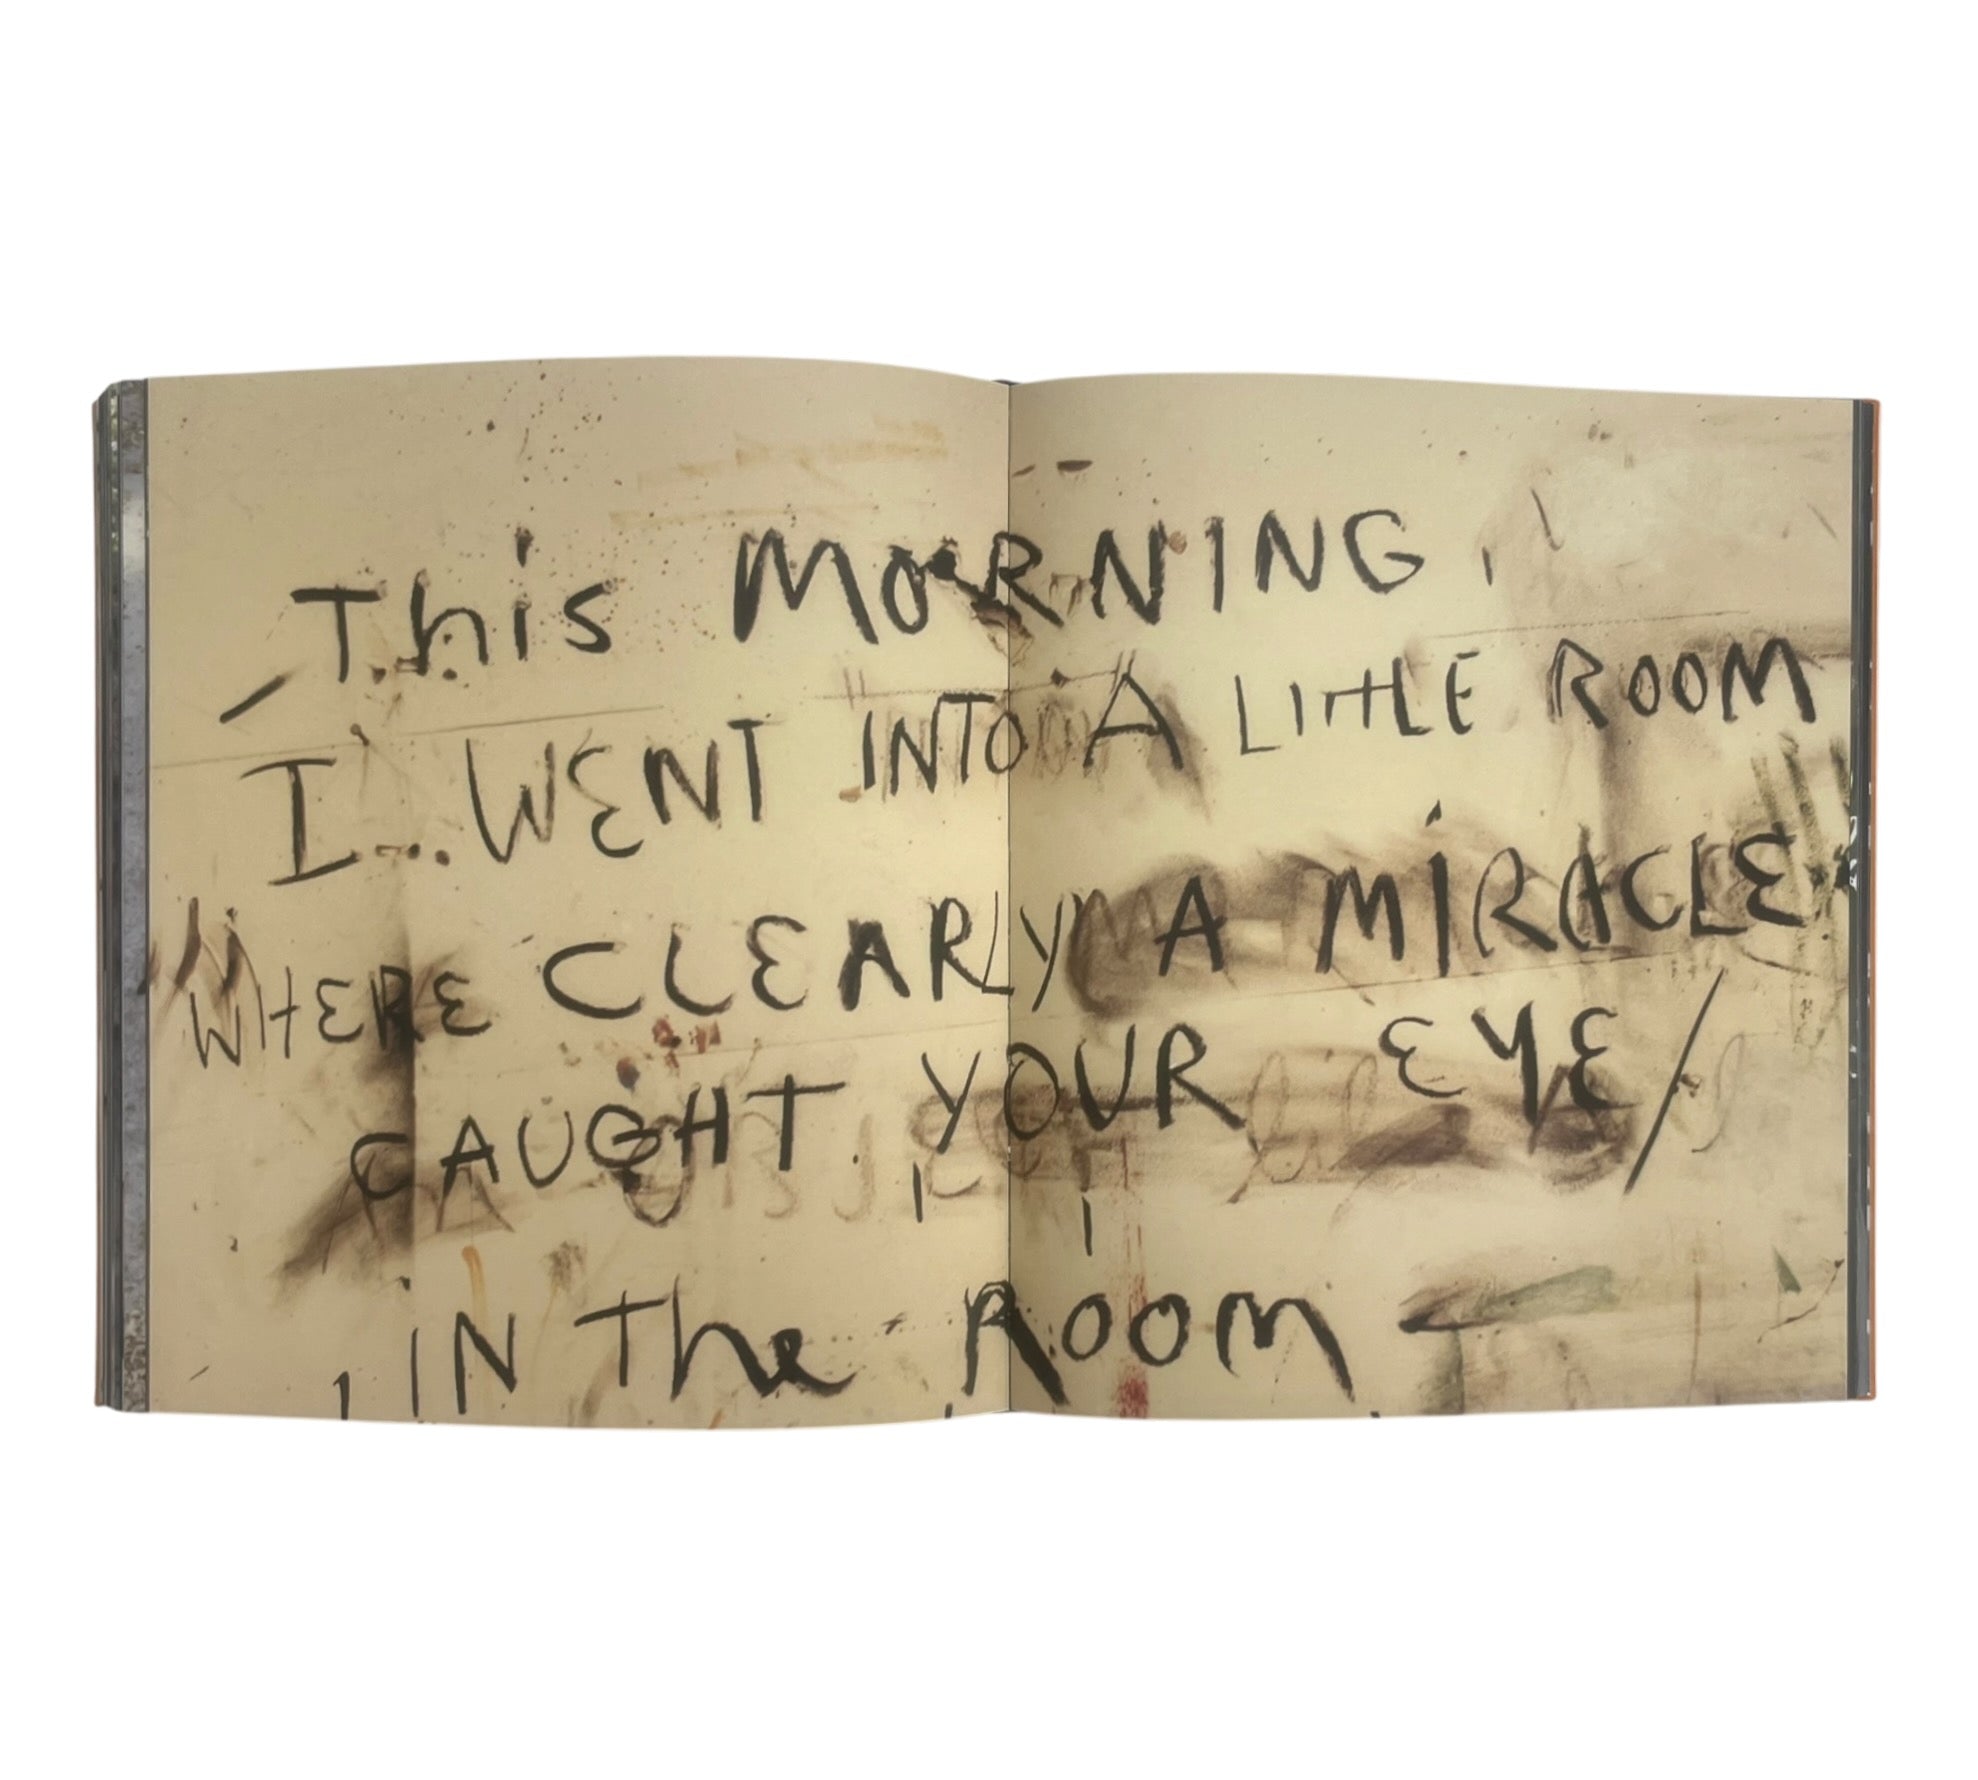 This MORNING,
I WENT INTO A LITTLE ROOM
WHERE CLEARLY A MIRACLE
CAUGHT YOUR EYE/
IN The ROOM